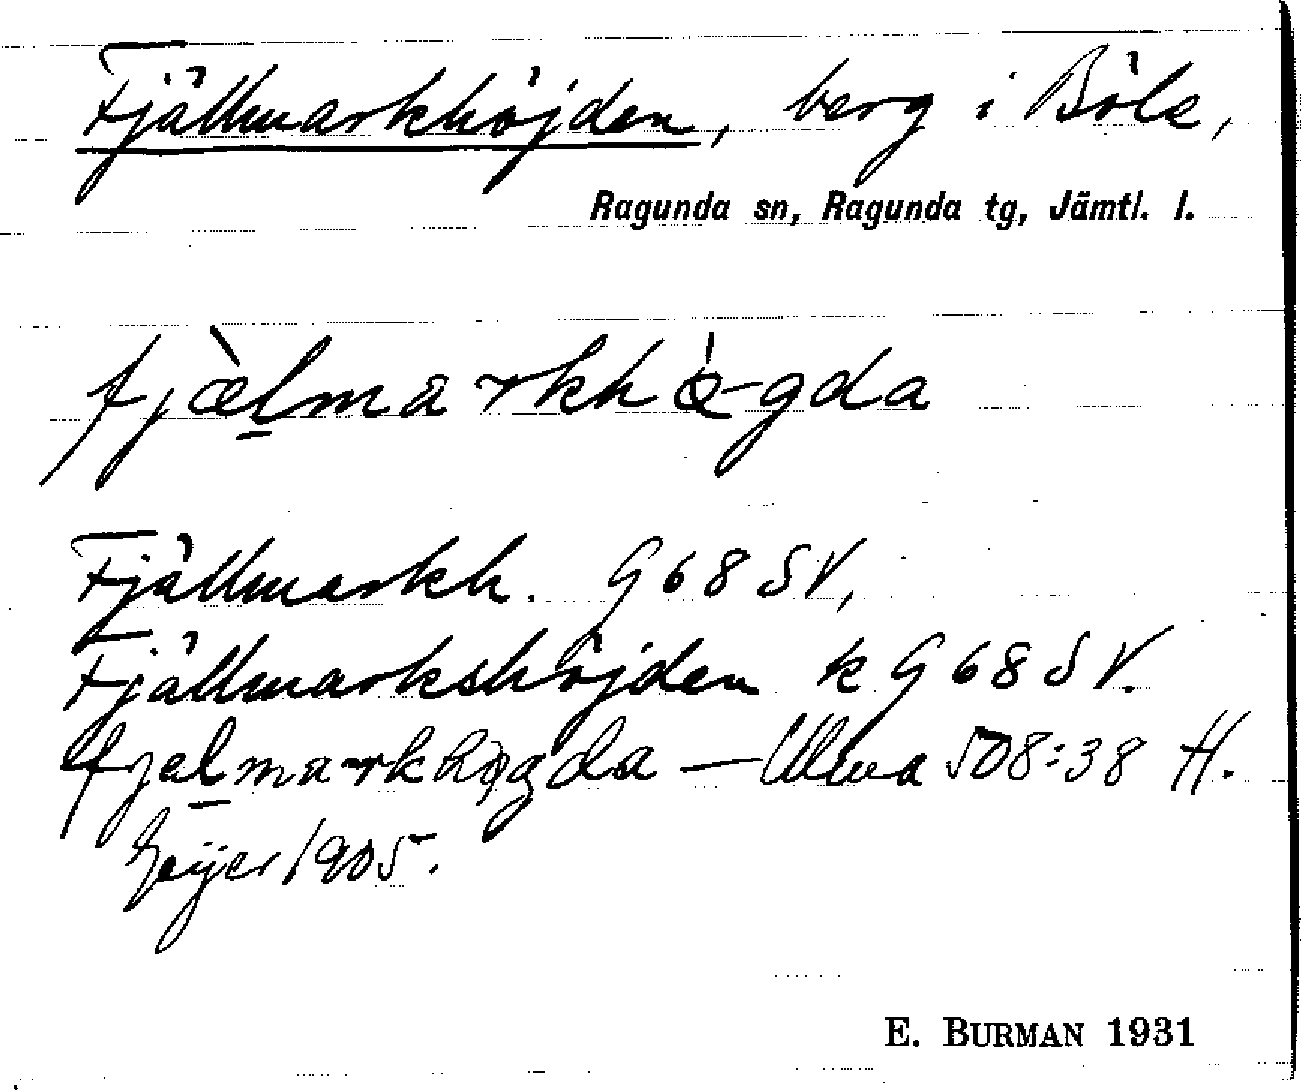 Fjällmarkhöjden, berg i Böle,
Ragunda sn, Ragunda tg, Jämtl. l.
fjæ̀l̲markhǿgda
Fjällmarkh. G 68 SV,
Fjällmarkshöjden k G 68 SV.
fjæl̲markhøgda — Ullva 508:38 H.
Geijer 1905.
E. BURMAN 1931